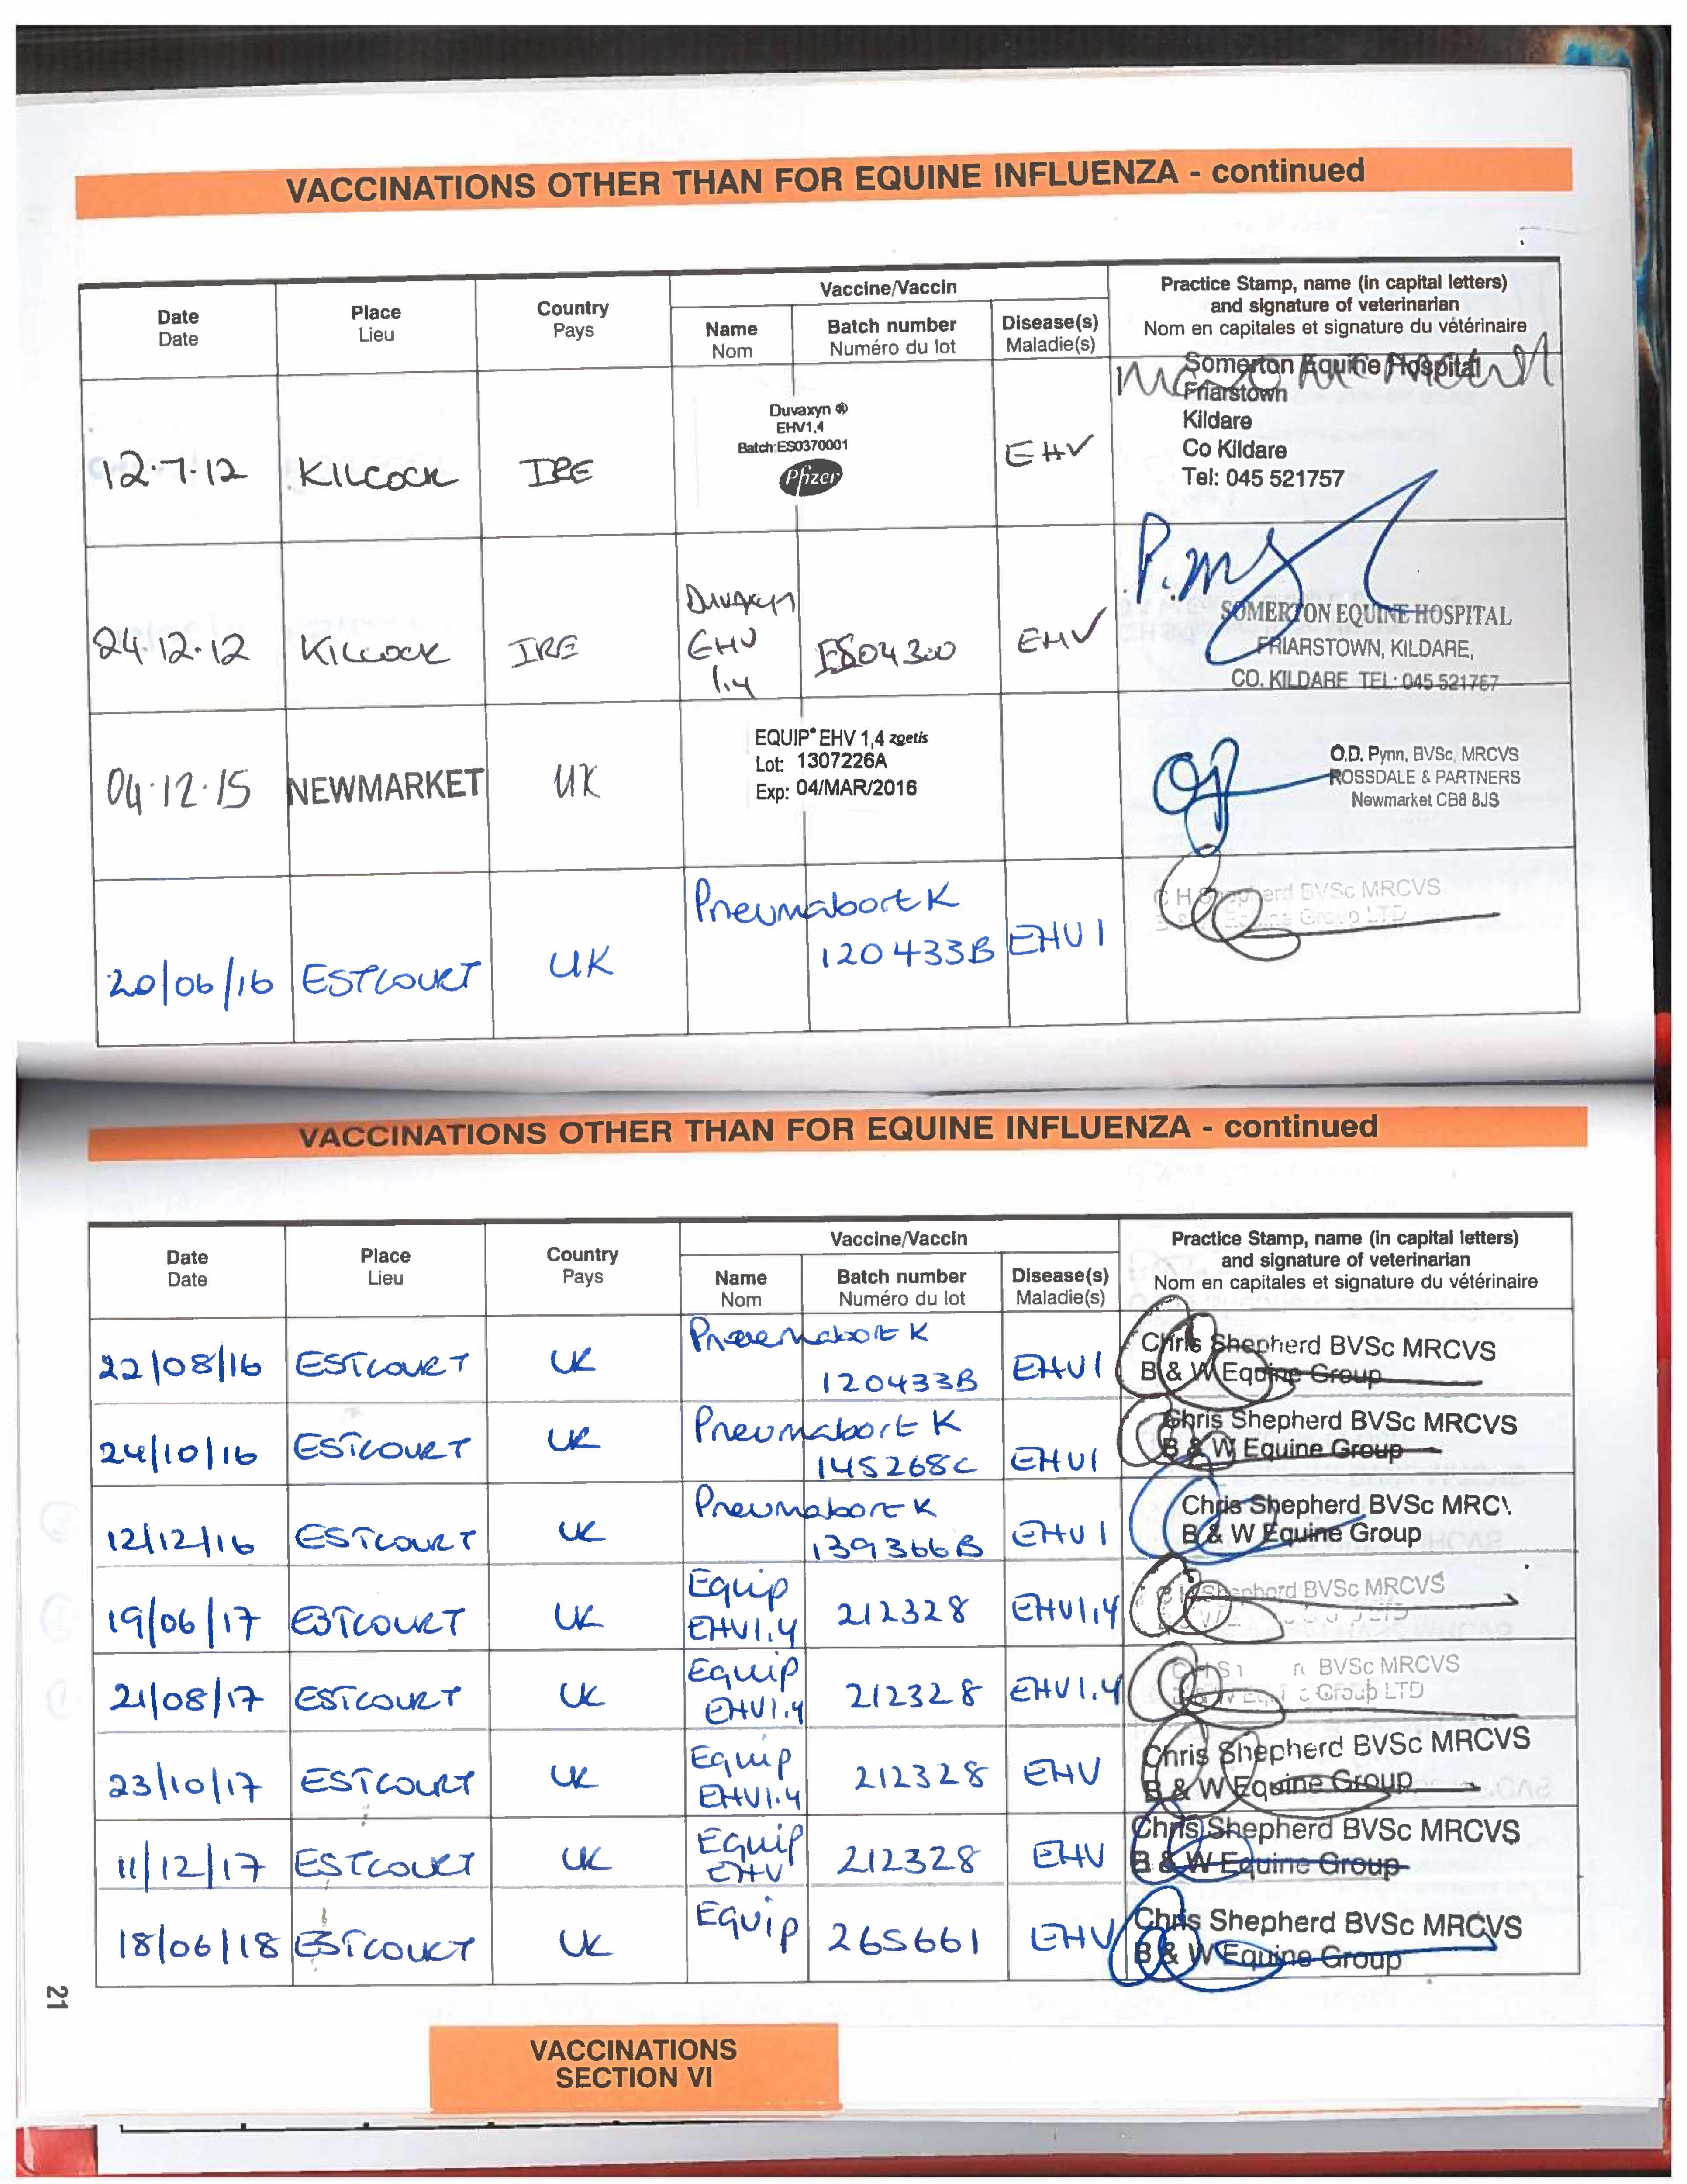 VACCINATIONS OTHER THAN FOR EQUINE INFLUENZA - continued
Date
Date
Place
Lieu
Country
Pays
Vaccine/Vaccin
Name
Nom
Batch number
Numéro du lot
Disease(s)
Maladie(s)
Practice Stamp, name (in capital letters)
and signature of veterinarian
Nom en capitales et signature du vétérinaire
12.7.12
KILCOCK
IRE
Duvaxyn ®
EHV1,4
Batch:ES0370001
Pfizer
EHV
Somerton Equine Hospital
Friarstown
Kildare
Co Kildare
Tel: 045 521757
24.12.12
Kilcock
IRE
Duvaxyn
EHV
1.4
ES04300
EHV
SOMERTON EQUINE HOSPITAL
FRIARSTOWN, KILDARE,
CO. KILDARE TEL: 045 521767
04.12.15
NEWMARKET
UK
EQUIP® EHV 1,4 zoetis
Lot: 1307226A
Exp: 04/MAR/2016
O.D. Pynn, BVSc, MRCVS
ROSSDALE & PARTNERS
Newmarket CB8 8JS
20/06/16
ESTCOURT
UK
Pneumabort K
120433B
EHV1
C H Shepherd BVSc MRCVS
B & W Equine Group LTD
VACCINATIONS OTHER THAN FOR EQUINE INFLUENZA - continued
Date
Date
Place
Lieu
Country
Pays
Vaccine/Vaccin
Name
Nom
Batch number
Numéro du lot
Disease(s)
Maladie(s)
Practice Stamp, name (in capital letters)
and signature of veterinarian
Nom en capitales et signature du vétérinaire
22/08/16
ESTCOURT
UK
Pneumabort K
120433B
EHV1
Chris Shepherd BVSc MRCVS
B & W Equine Group
24/10/16
ESTCOURT
UK
Pneumabort K
145268C
EHV1
Chris Shepherd BVSc MRCVS
B & W Equine Group
12/12/16
ESTCOURT
UK
Pneumabort K
139366B
EHV1
Chris Shepherd BVSc MRC
B & W Equine Group
19/06/17
ESTCOURT
UK
Equip
EHV1.4
212328
EHV1,4
Shephard BVSc MRCVS
21/08/17
ESTCOURT
UK
Equip
EHV1.4
212328
EHV1.4
BVSc MRCVS
Group LTD
23/10/17
ESTCOURT
UK
Equip
EHV1.4
212328
EHV
Chris Shepherd BVSc MRCVS
B & W Equine Group
11/12/17
ESTCOURT
UK
Equip
EHV
212328
EHV
Chris Shepherd BVSc MRCVS
B & W Equine Group
18/06/18
ESTCOURT
UK
Equip
265661
EHV
Chris Shepherd BVSc MRCVS
B & W Equine Group
21
VACCINATIONS
SECTION VI